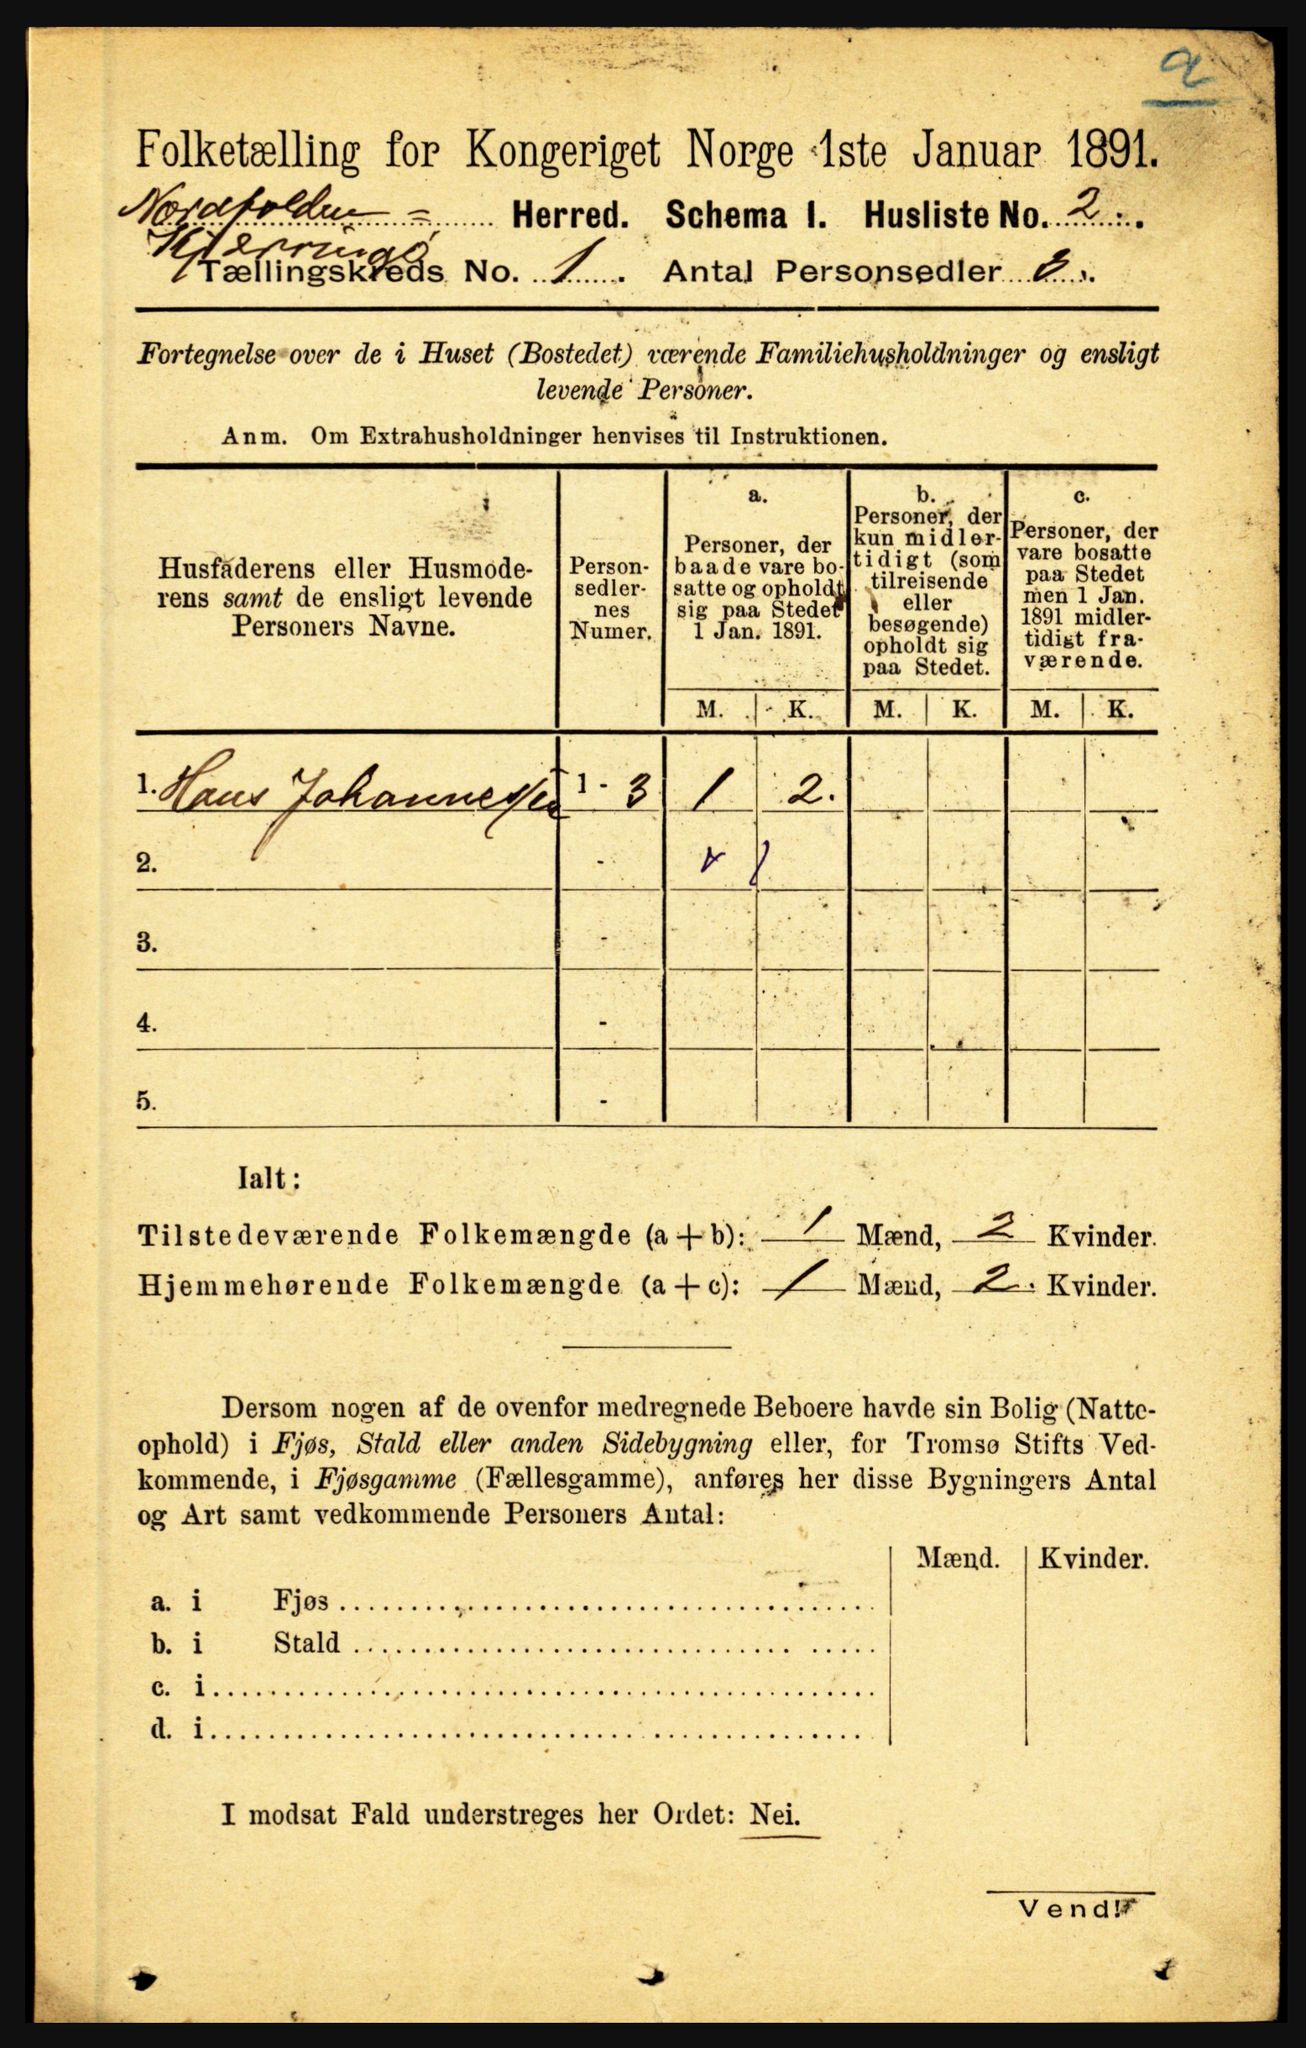 a
Folketælling for Kongeriget Norge 1ste Januar 1891.
Nordfolden - Herred. Schema I. Husliste No. 2.
Kjerringø
Tællingskreds No. 1. Antal Personsedler 3.
Fortegnelse over de i Huset (Bostedet) værende Familiehusholdninger og ensligt
levende Personer.
Anm. Om Extrahusholdninger henvises til Instruktionen.
Husfaderens eller Husmode-
rens samt de ensligt levende
Personers Navne.
Person-
sedler-
nes
Numer.
a.
Personer, der
baade vare bo-
satte og opholdt
sig paa Stedet
1 Jan. 1891.
b.
Personer, der
kun midler-
tidigt (som
tilreisende
eller
besøgende)
opholdt sig
paa Stedet.
c.
Personer, der
vare bosatte
paa Stedet
men 1 Jan.
1891 midler-
tidigt fra-
værende.
M. K. M. K. M. K.
1. Hans Johannessen 1 - 3 1 2.
2. -
3. -
4. -
5. -
Ialt:
Tilstedeværende Folkemængde (a + b): 1 Mænd, 2 Kvinder.
Hjemmehørende Folkemængde (a + c): 1 Mænd, 2. Kvinder.
Dersom nogen af de ovenfor medregnede Beboere havde sin Bolig (Natte-
ophold) i Fjøs, Stald eller anden Sidebygning eller, for Tromsø Stifts Ved-
kommende, i Fjøsgamme (Fællesgamme), anføres her disse Bygningers Antal
og Art samt vedkommende Personers Antal:
Mænd. Kvinder.
a. i Fjøs
b. i Stald
c. i
d. i
I modsat Fald understreges her Ordet: Nei.
Vend!